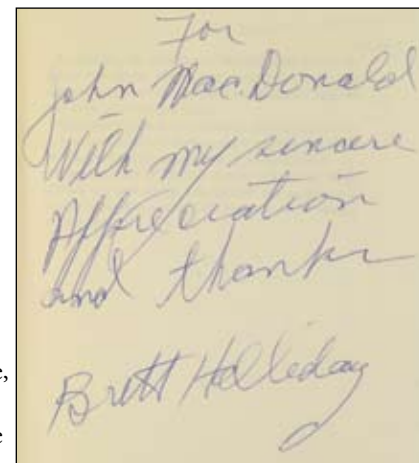 For
John MacDonald
With my sincere
Appreciation
and thanks
Brett Halliday